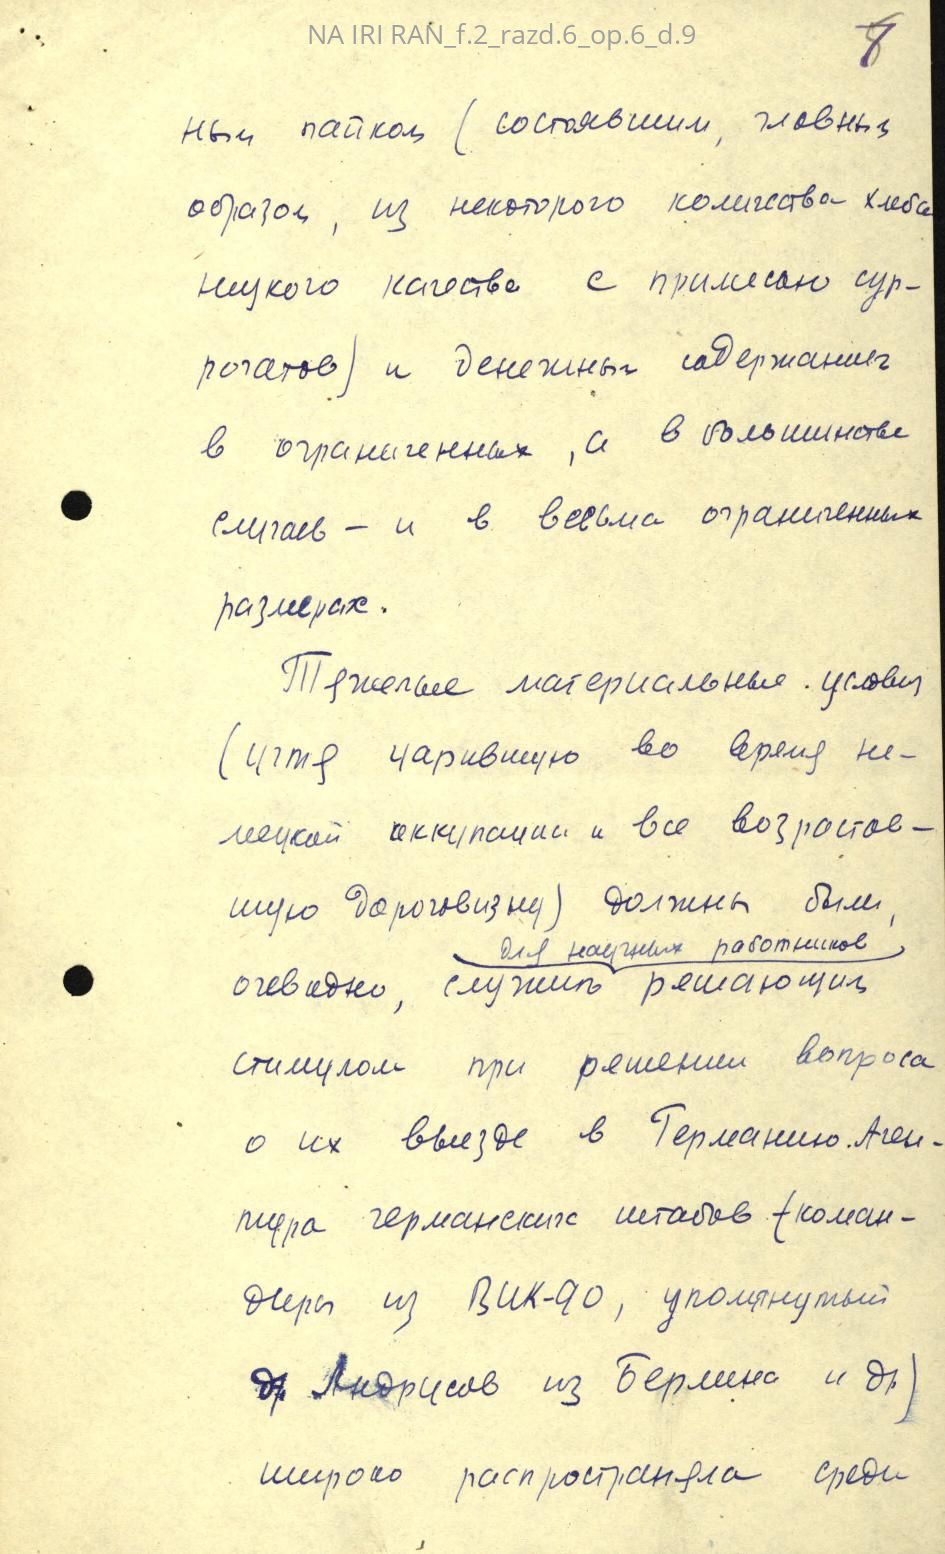 NA IRI RAN_f.2_razd.6_op.6_d.9
8
ным пайком (состоявшим, главным
образом, из некоторого количества хлеба
низкого качества с примесью сур-
рогатов) и денежным содержанием
в ограниченных, а в большинстве
случаев – и в весьма ограниченных
размерах.
Тяжелые материальные условия
(учтя царившую во время не-
мецкой оккупации и все возрастав-
шую дороговизну) должны были,
для научных работников
очевидно, служить решающим
стимулом при решении вопроса
о их выезде в Германию. Аген-
тура германских штабов (коман-
диры из ВИК-90, упомянутый
др Андрусов из Берлина и др)
широко распространяла среди